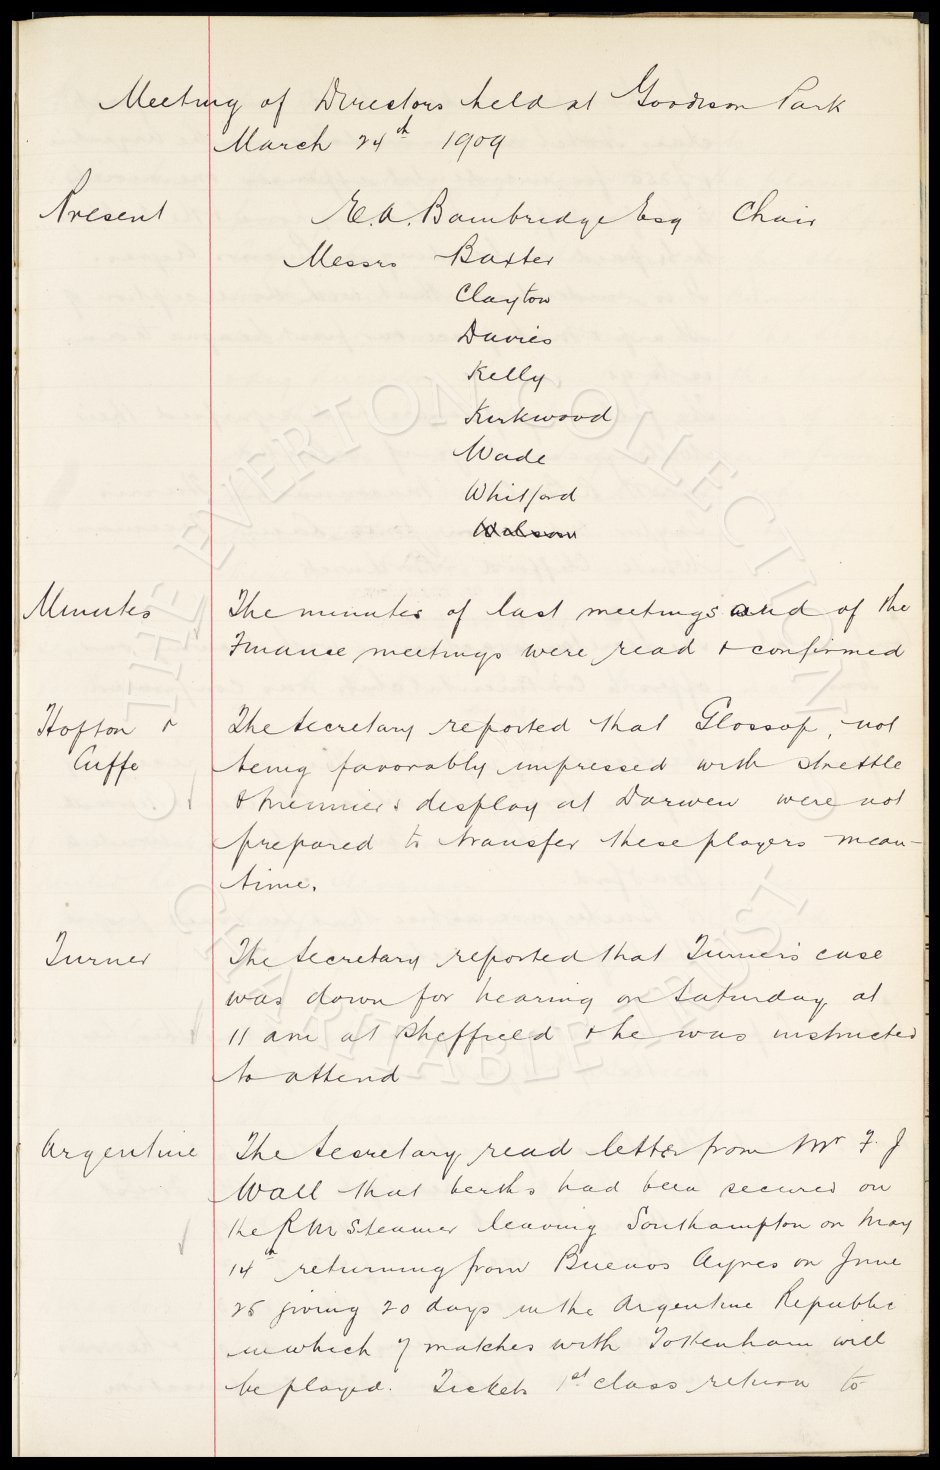 Meeting of Directors held at Goodison Park
March 24th 1909
Present E.A. Bainbridge Esq Chair
Messrs Baxter
Clayton
Davies
Kelly
Kirkwood
Wade
Whitford
Minutes The minutes of last meetings and of the
Finance meetings were read & confirmed
Hofton & The Secretary reported that Glossop, not
Cuffe being favorably impressed with Strettle
& Meunier's display at Darwen were not
prepared to transfer these players mean-
time.
Turner The Secretary reported that Turner's case
was down for hearing on Saturday at
11 am at Sheffield & he was instructed
to attend
Argentine The Secretary read letter from Mr F. J
Wall that berths had been secured on
the R M Steamer leaving Southampton on May
14th returning from Buenos Ayres on June
25 giving 20 days in the Argentine Republic
in which 7 matches with Tottenham will
be played. Tickets 1st class return to
THE EVERTON COLLECTION
CHARITABLE TRUST